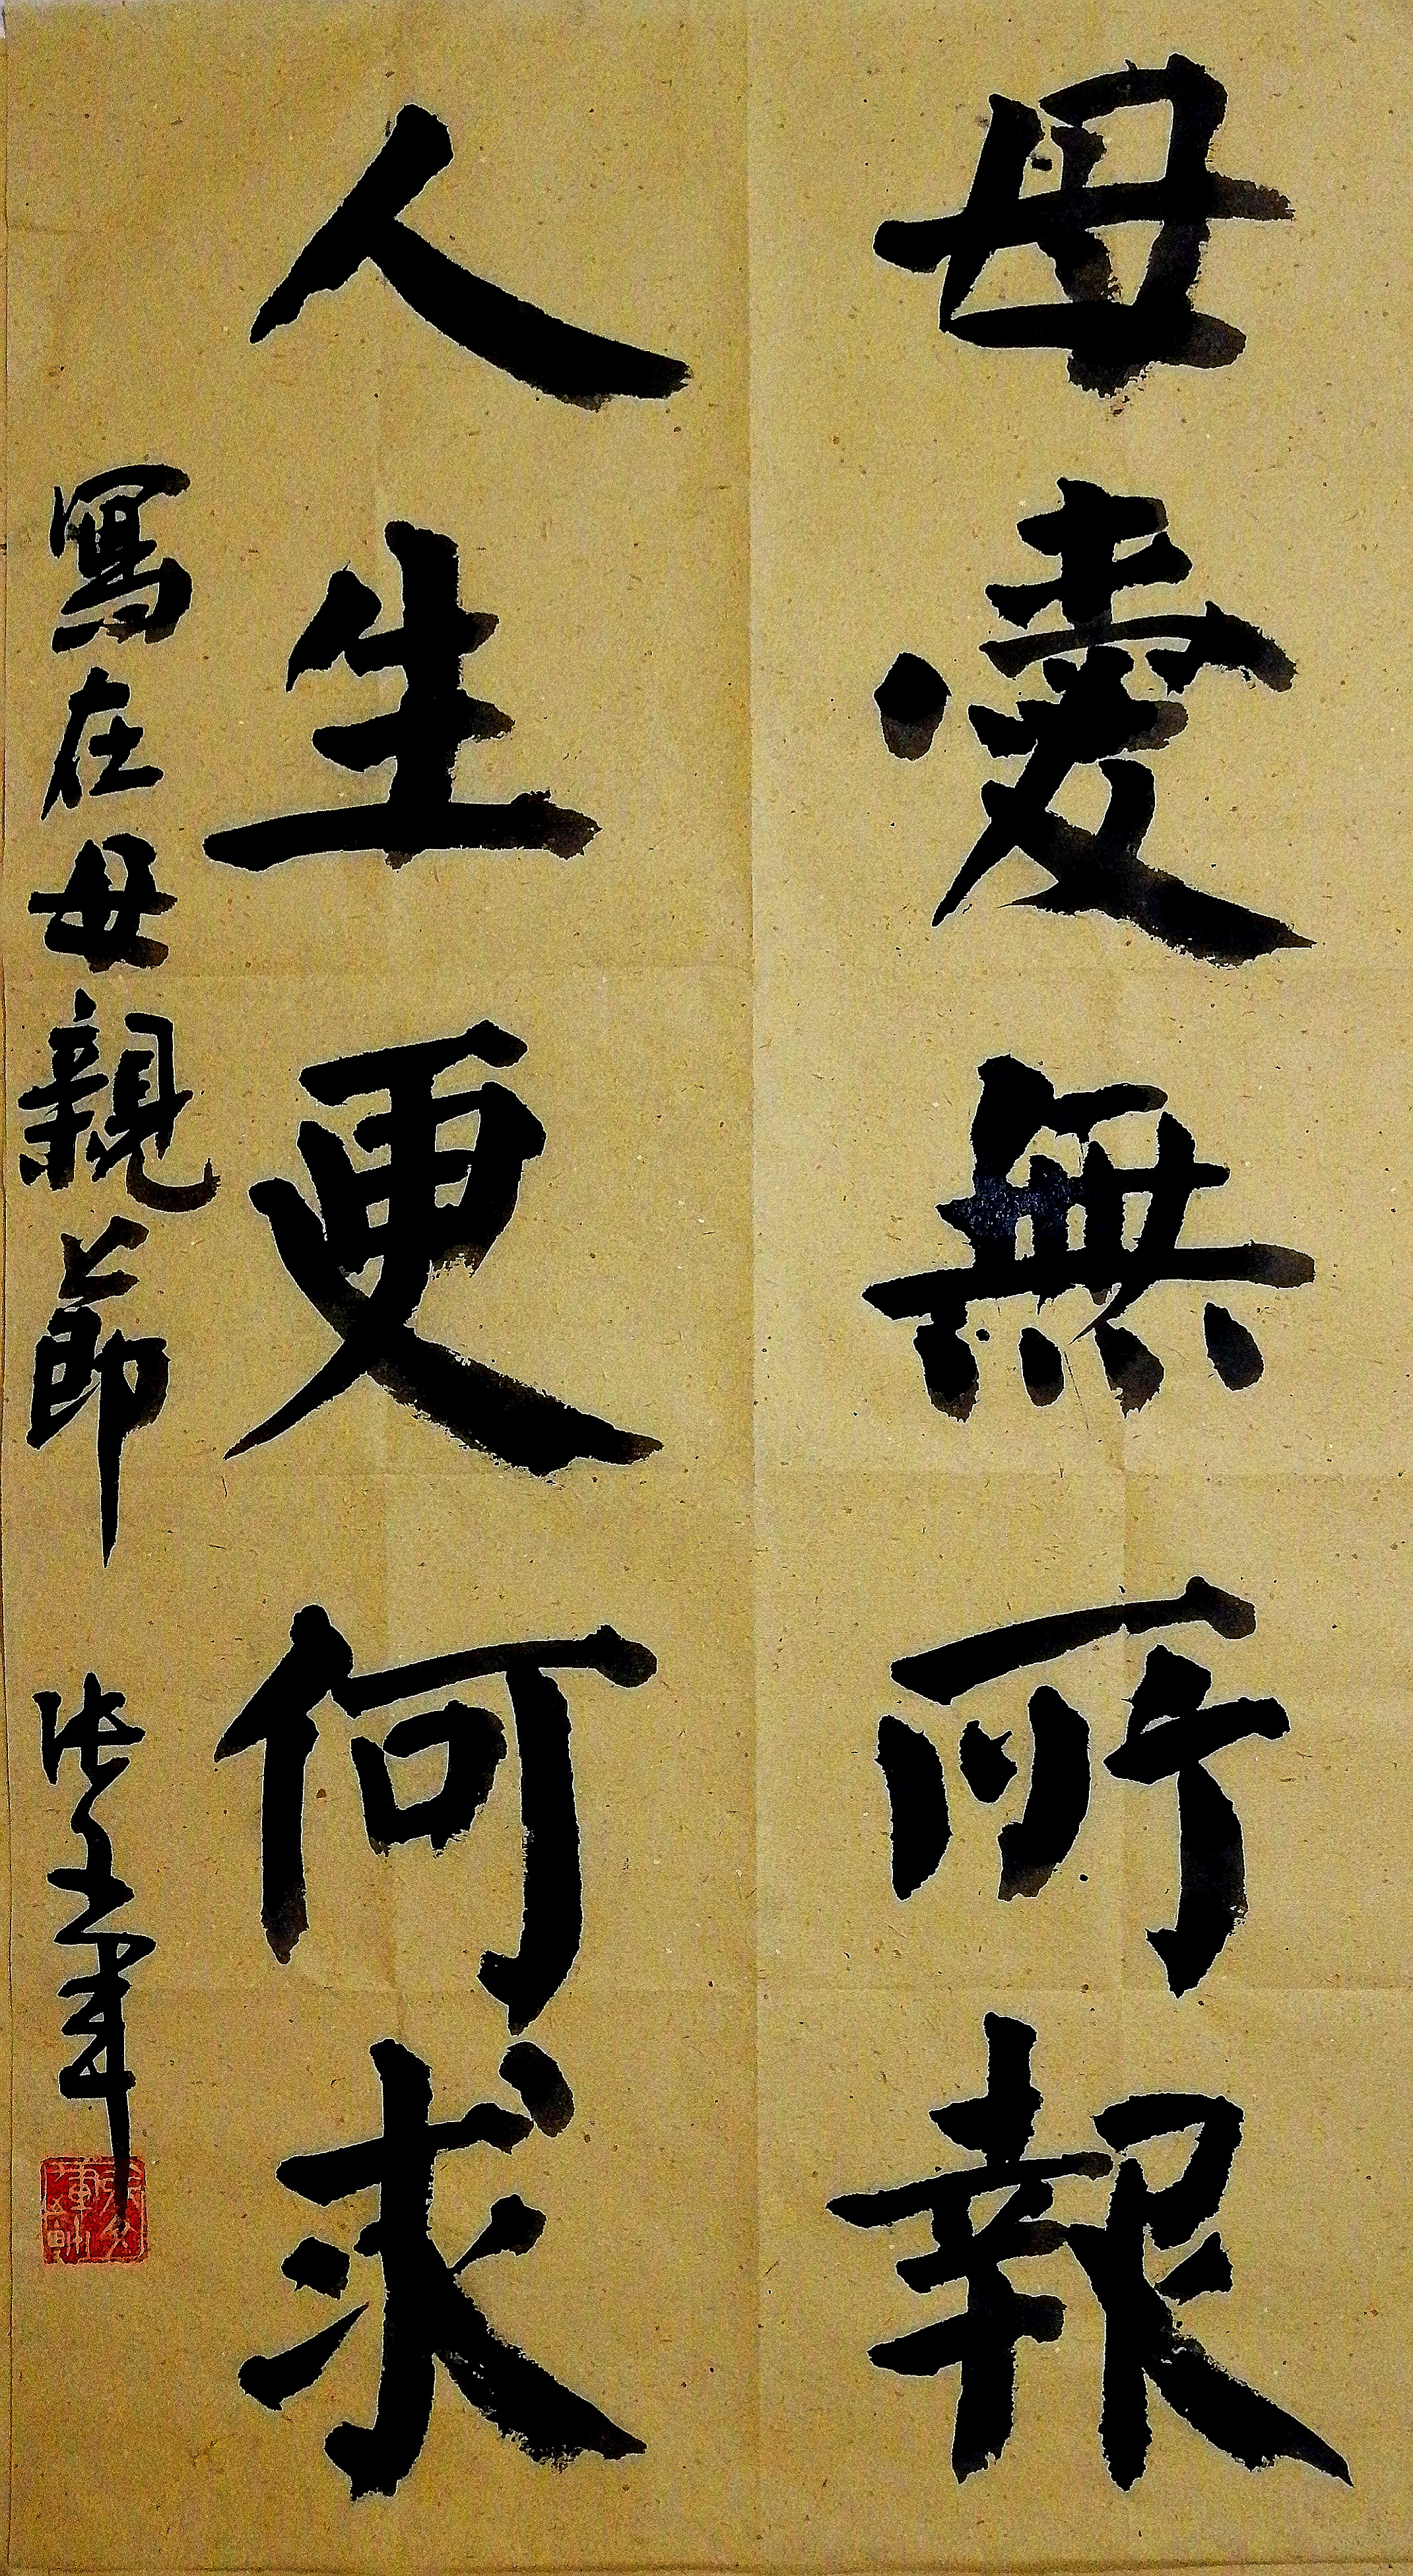 母愛無所報
人生更何求
寫在母親節